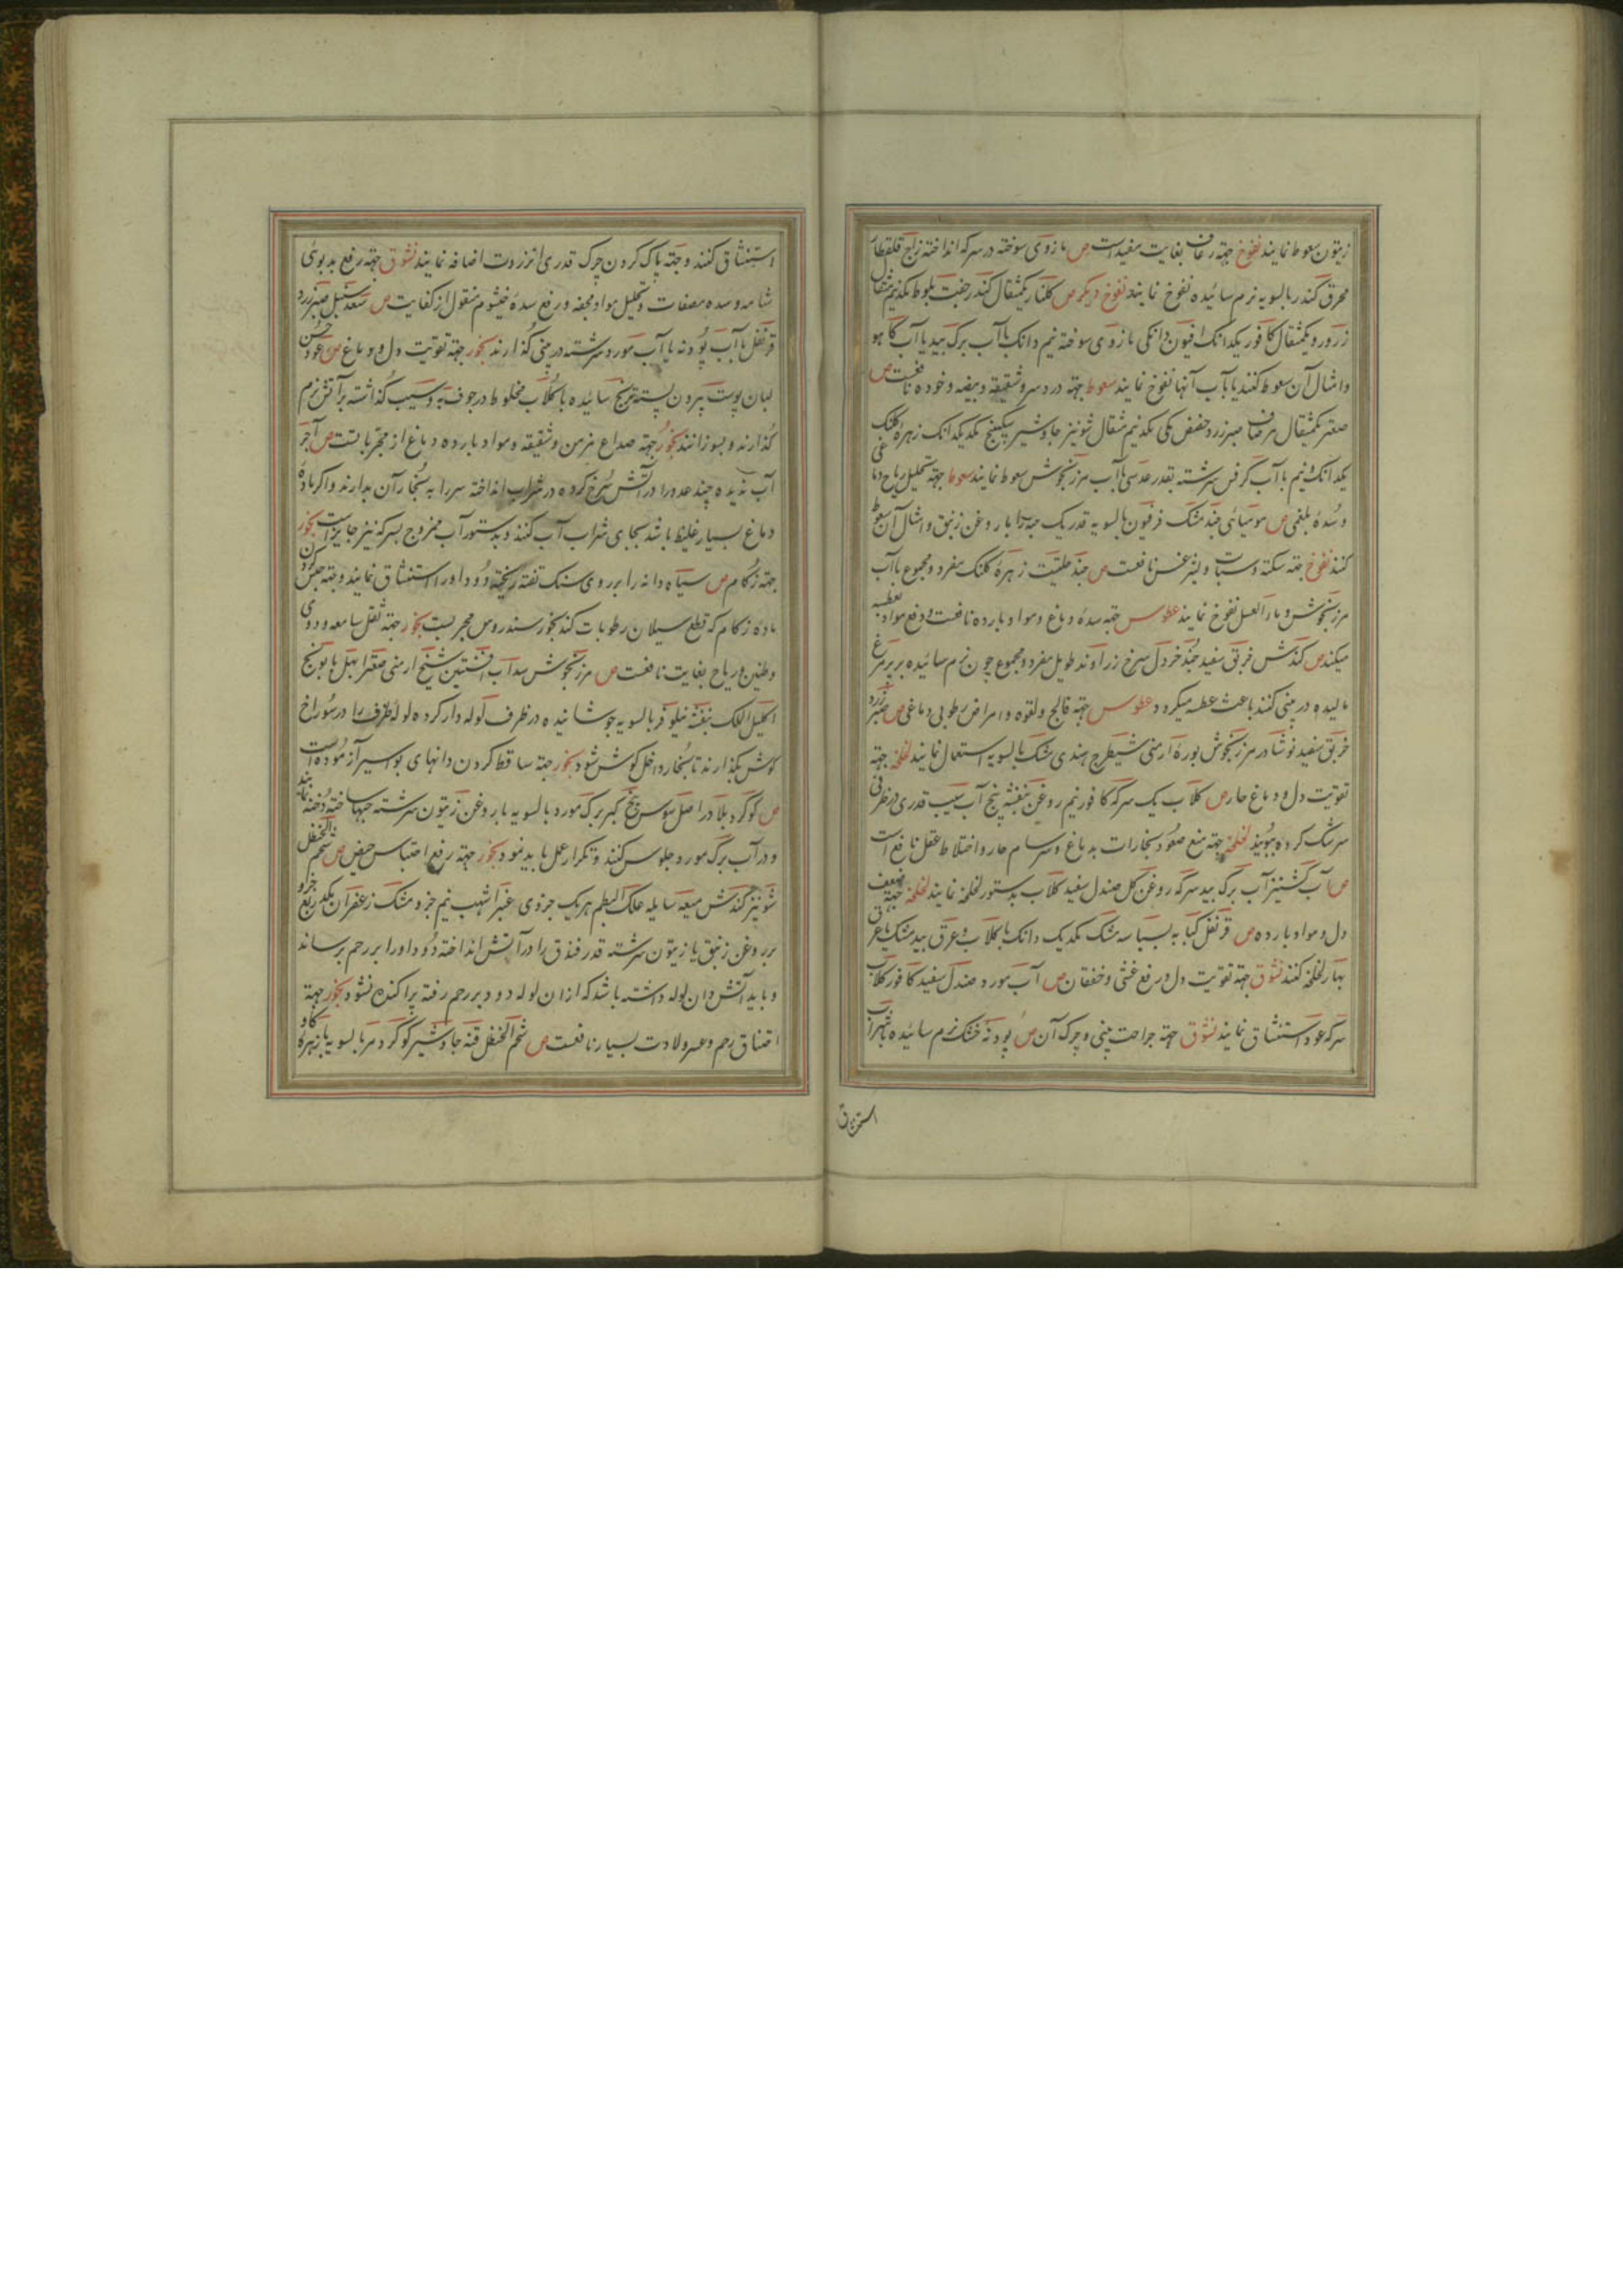 زیتون سعوط نمایند نفوخ جهة رعاف بغایت مفیدست ص مازوی سوخته در سرکه انداخته زاج قلقطار
محرق کندر بالسویه نرم سائیده نفوخ نمایند نفوخ دیگر ص کلنار یکمثقال کندر جفت بلوط یکدنیم مثقال
زرورد یکمثقال کافور یکدانک افیون دانکی مازوی سوخته نیم دانک باآب برک بید یا آب کاهو
وامثال آن سعوط کنند یا باآب آنها نفوخ نمایند سعوط جهة درد سر و شقیقه و بیضه و خوده نافعست ص
صعتر یکمثقال مرصاف صبر زرد حضض مکی یکدنیم مثقال شونیز جاوشیر سکبینج یکدیکدانک زهره کلنک
یکدانک ونیم باآب کرفس سرشته بقدر عدسی باآب مرزنجوش سعوط نمایند سعوط جهة تحلیل ریاح دماغی
وسده بلغمی ص مومیائی جند مشک فرفیون بالسویه قدر یک حبه را با روغن زنبق و امثال آن سعوط
کنند نفوخ جهة سکته و سبات و لیثرغس نافعست ص جند حلتیت زهره کلنک مفرد و مجموع باآب
مرزنجوش و ماءالعسل نفوخ نمایند عطوس جهة سده دماغ و مواد بارده نافعست و دفع مواد بعطسه
میکند ص کندش خربق سفید جند خردل سرخ زراوند طویل مفرد و مجموع چون نرم سائیده بر پر مرغ
مالیده در بینی کنند باعث عطسه میکردد عطوس جهة فالج و لقوه و امراض رطوبی دماغی ص صبر زرد
خربق سفید نوشادر مرزنجوش بوره ارمنی شیطرج هندی مشک بالسویه استعمال نمایند لخلخه جهة
تقویت دل و دماغ حار ص کلاب یک سرکه کافور نیم روغن بنفشه پنج آب سیب قدری در ظرفی
سرشک کرده ببویند لخلخه جهة منع صعود بخارات بدماغ و سرسام حار و اختلاط عقل نافع است
ص آب کشنیز آب برک بید سرکه روغن کل صندل سفید کلاب بدستور لخلخه نمایند لخلخه جهة ضعف
دل و مواد بارده ص قرنفل کبابه بسباسه مشک یکدیک دانک باکلاب و عرق بید مشک یا عرق
بهار لخلخه کنند نشوق جهة تقویت دل و رفع غشی و خفقان ص آب مورد صندل سفید کافور کلاب
سرکه عود استنشاق نمایند نشوق جهة جراحت بینی و چرک آن ص پودنه خشک نرم سائیده باشراب
استنشاق
استنشاق کنند و جهة پاک کردن چرک قدری انزروت اضافه نمایند نشوق جهة رفع بدبوئی
شامه و سده مصفات و تحلیل مواد مجففه و رفع سده خیشوم منقول از کفایت ص سعد سنبل صبر زرد
قرنفل باآب پودنه یا آب مورد سرشته در بینی کذارند بخور جهة تقویت دل و دماغ ص عود حسن
لبان پوست بیرون پسته ترنج سائیده باکلاب مخلوط در جوف به و سیب کذاشته برآتش نرم
کذارند و بسوزانند بخور جهة صداع مزمن و شقیقه و مواد بارده دماغ از مجرباتست ص آجر
آب ندیده چند عدد را در آتش سرخ کرده در شراب انداخته سر را به بخار آن بدارند و اکر ماده
دماغ بسیار غلیظ باشد بجای شراب آب کنند و بدستور آب ممزوج بسرکه نیز جایز است بخور
جهة زکام ص سیاه دانه را بر روی سنک تفته ریخته دود او را استنشاق نمایند و جهة حبس کردن
ماده زکام که قطع سیلان رطوبات کند بخور سندروس مجربست بخور جهة ثقل سامعه و دوی
وطنین و ریاح بغایت نافعست ص مرزنجوش سداب افسنتین شیخ ارمنی صعتر ابهل بابونج
اکلیل الملک بنفشه نیلوفر بالسویه جوشانیده در ظرف لوله دار کرده لوله ظرف را در سوراخ
کوش بکذارند تا بخار داخل کوش شود بخور جهة ساقط کردن دانهای بواسیر آزموده است
ص کوکرد بلادر اصل سوس بیخ کبر برک مورد بالسویه با روغن زیتون سرشته حبها ساخته دخنه نمایند
و در آب برک مورد جلوس کنند و تکرار عمل باید نمود بخور جهة رفع احتباس حیض ص شحم الحنظل
شونیز کندش میعه سایله علک البطم هر یک جزوی عنبر اشهب نیم جزو مشک زعفران یکد ربع جزو
بر روغن زنبق یا زیتون سرشته قدر فندق را در آتش انداخته دود او را بر رحم برساند
و باید آتشدان لوله داشته باشد که از ان لوله دود بر رحم رفته پراکنده نشود بخور جهة
اختناق رحم و عسر ولادت بسیار نافعست ص شحم الحنظل قنه جاوشیر کوکرد مر بالسویه بازهره کاو